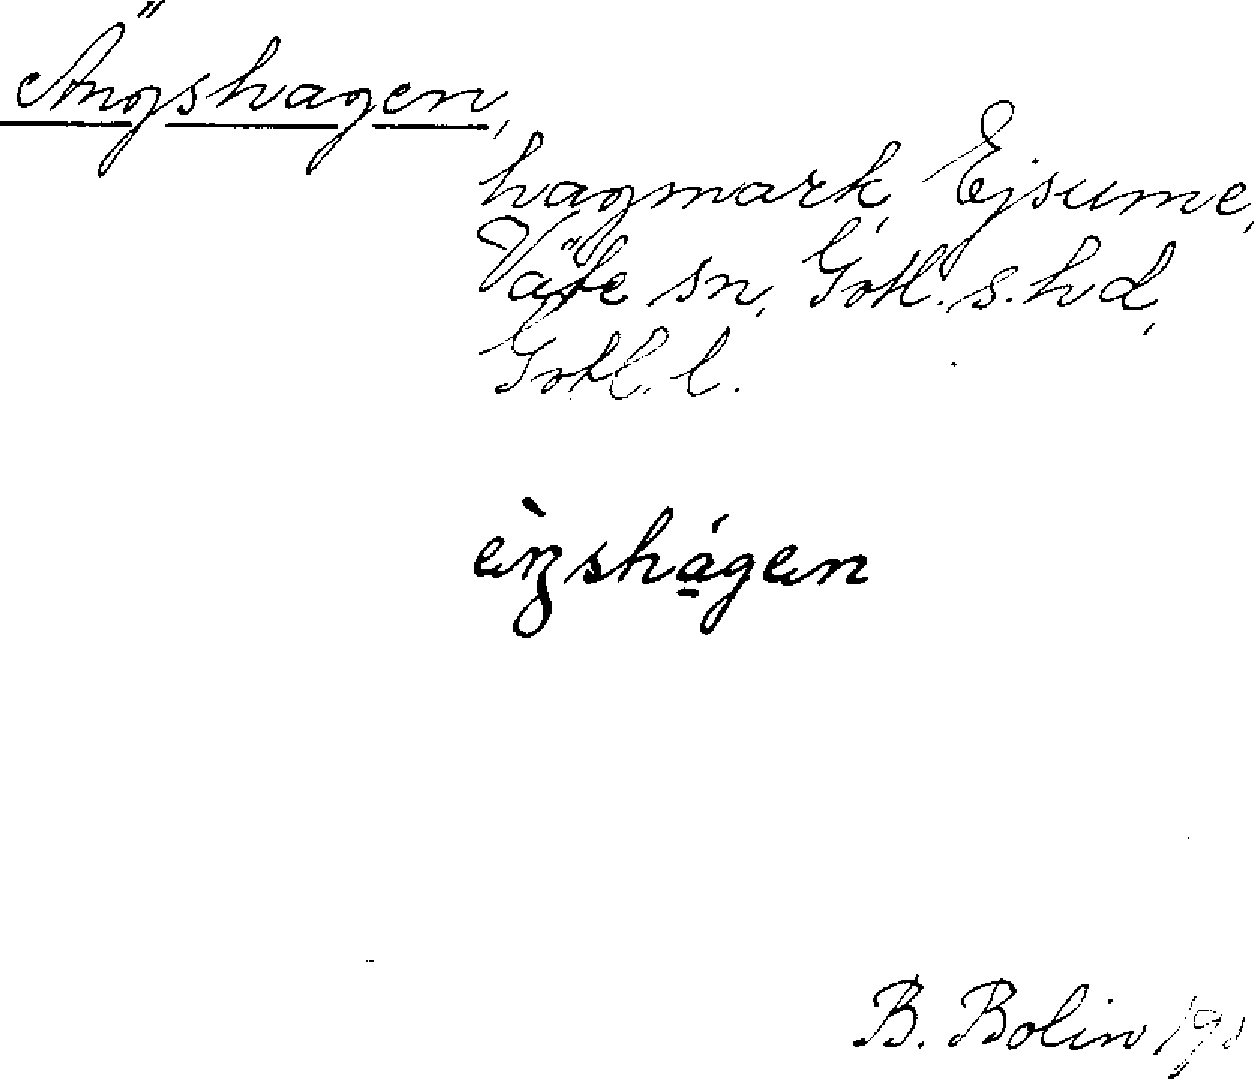 Ängshagen,
hagmark, Ejsume,
Väte sn, Gotl. s. hd,
Gotl. l.
B. Bolin